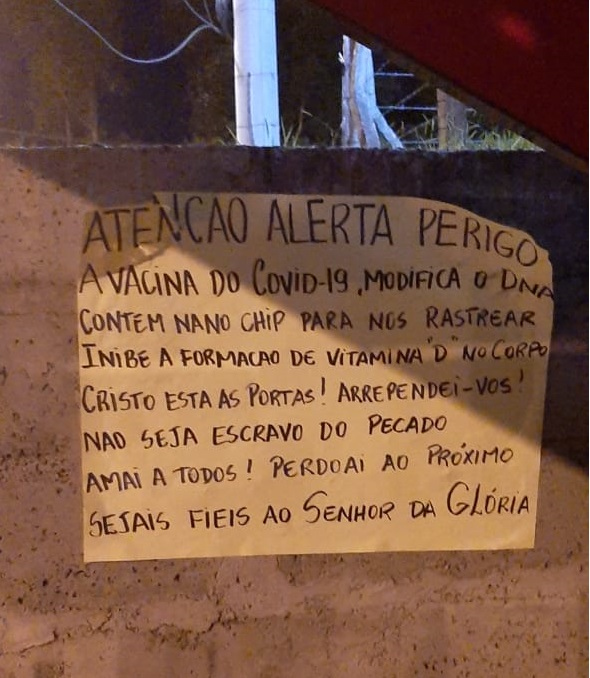 ATENCAO ALERTA PERIGO
A VACINA DO COVID-19, MODIFICA O DNA
CONTEM NANO CHIP PARA NOS RASTREAR
INIBE A FORMACAO DE VITAMINA "D" NO CORPO
CRISTO ESTA AS PORTAS! ARREPENDEI-VOS!
NAO SEJA ESCRAVO DO PECADO
AMAI A TODOS! PERDOAI AO PRÓXIMO
SEJAIS FIEIS AO SENHOR DA GLÓRIA